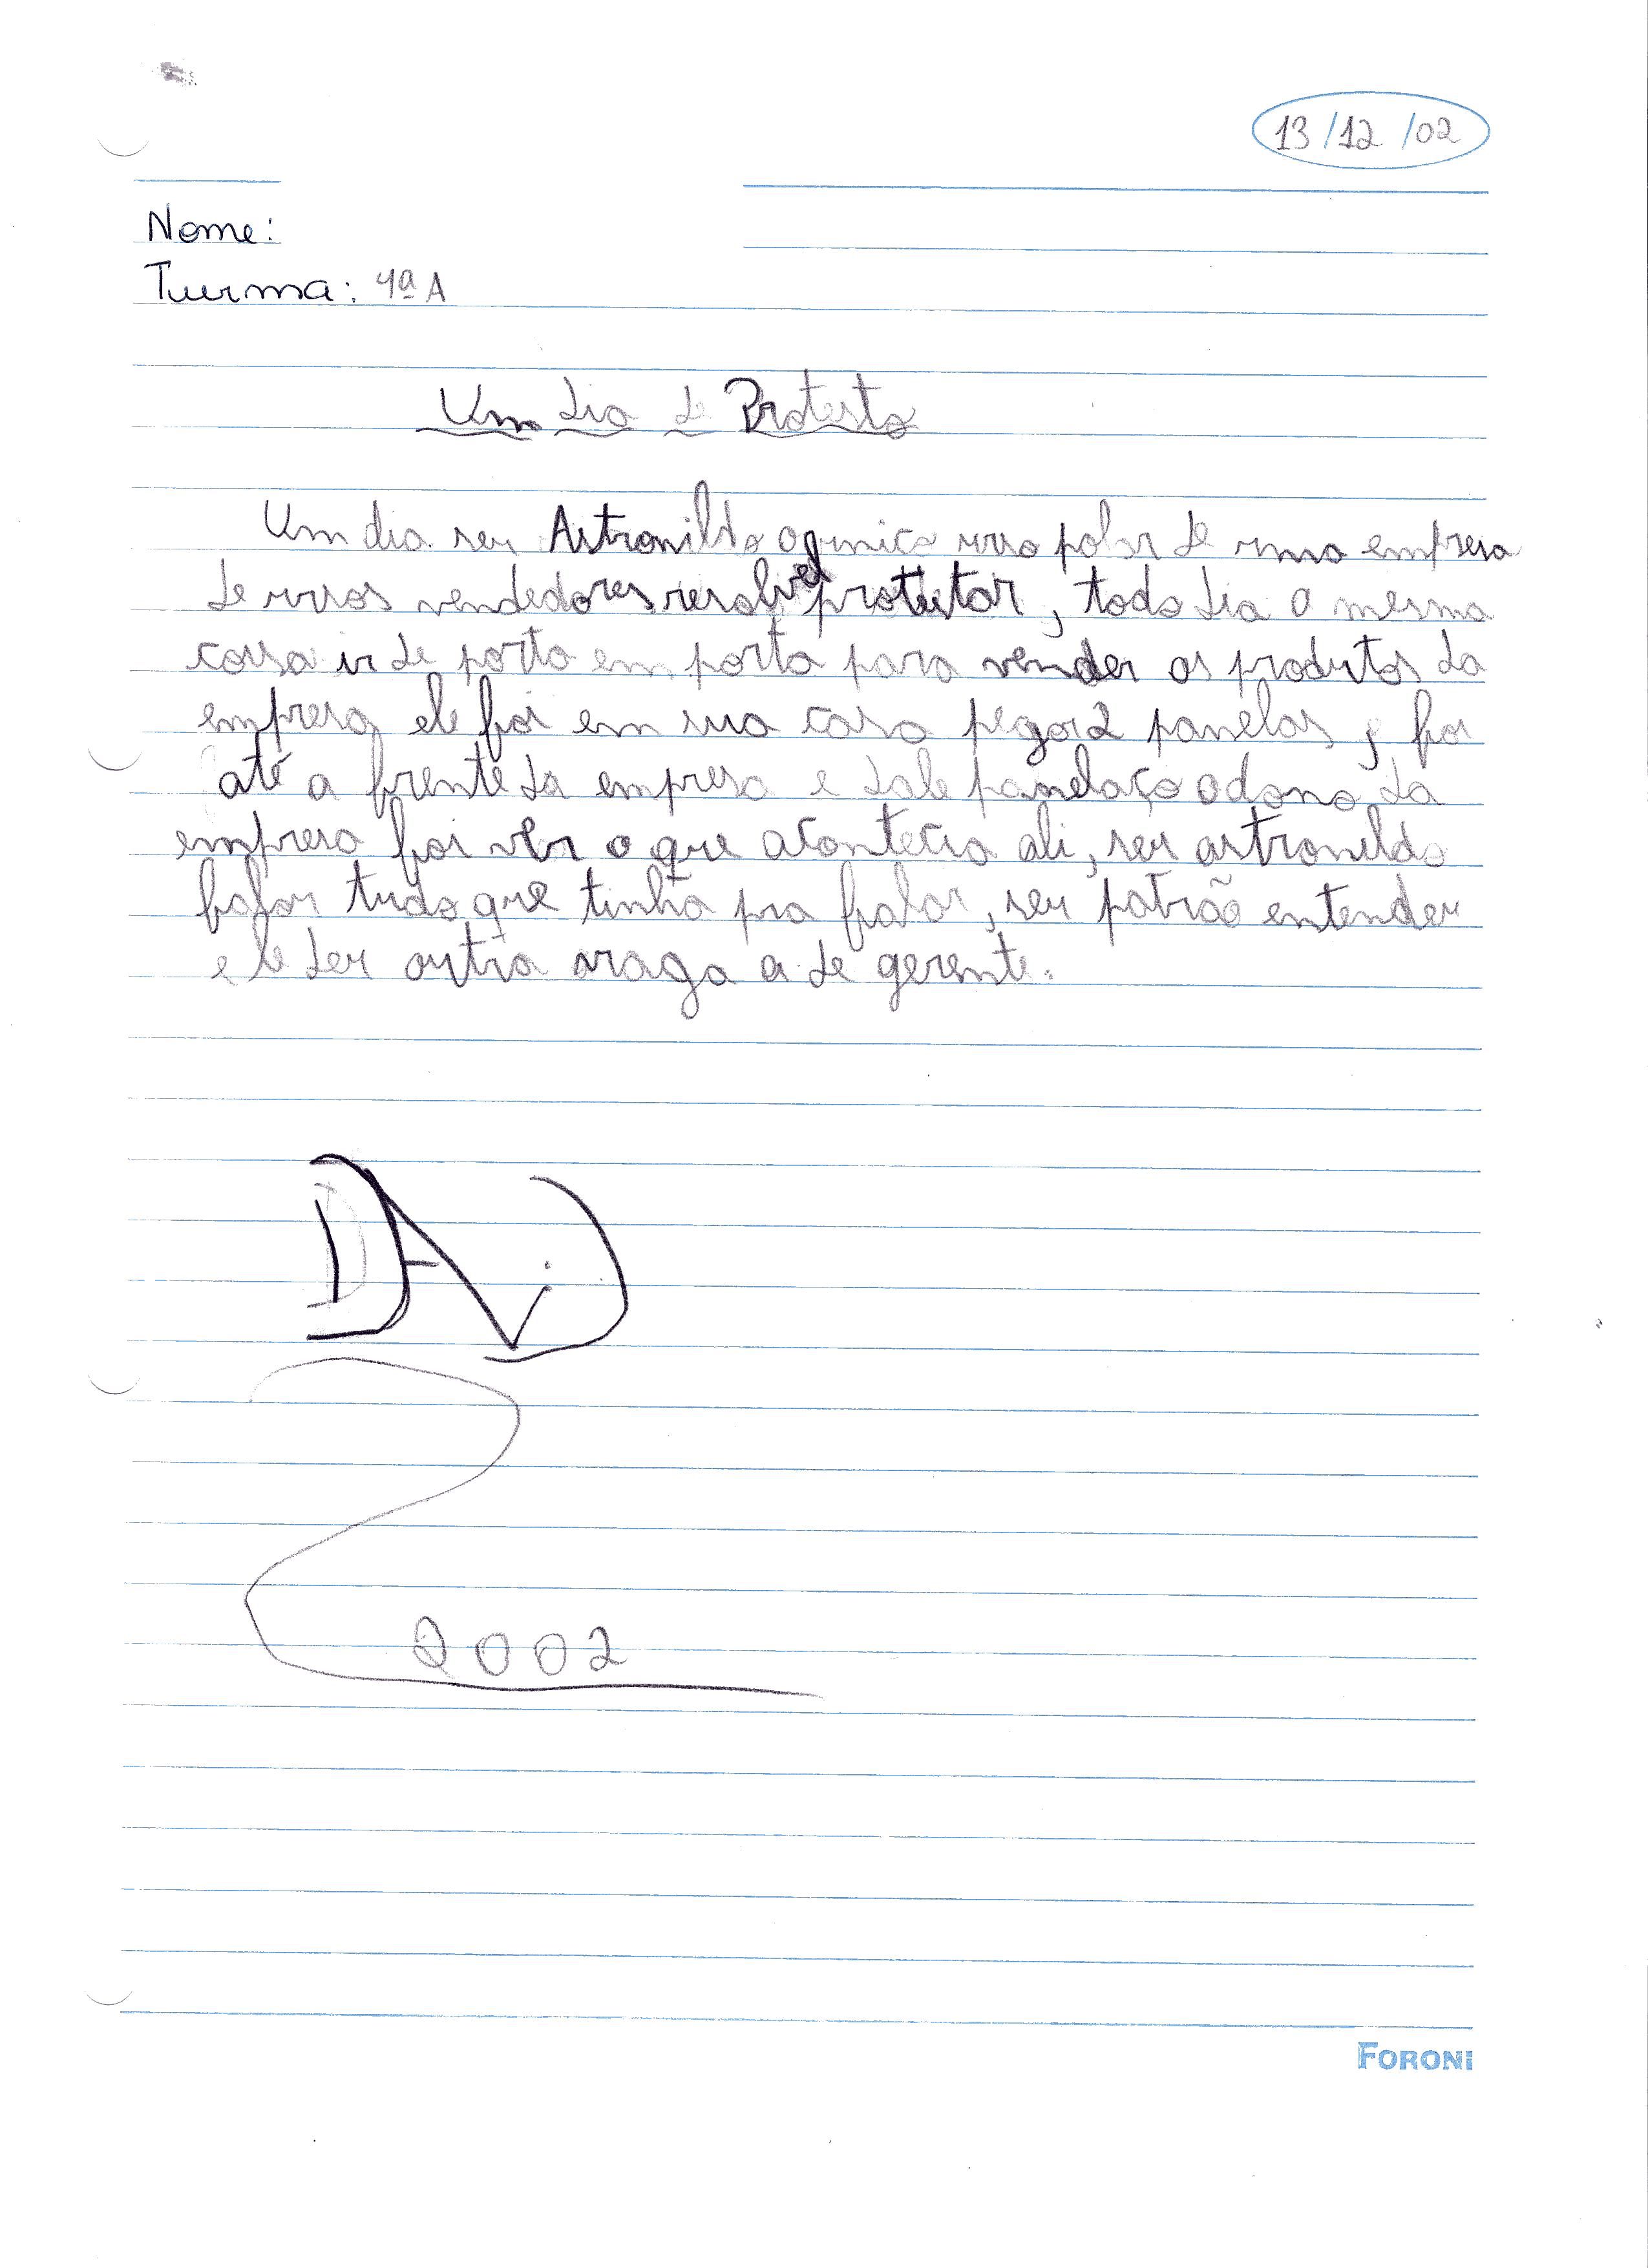 13/12/02
Nome:
Turma: 4ª A
Um dia de Protesto
Um dia seu Astronildo o unico urso polar de uma empresa
de ursos vendedores resolvel protestar, todo dia a mesma
coisa ir de porta em porta para vender os produtos da
empresa ele foi em sua casa pegou 2 panelas, foi
até a frente da empresa e dale panelaço o dono da
empresa foi ver o que acontecia ali, seu astronildo
falou tudo que tinha pra falar, seu patrão entendeu
e le deu outra vaga a de gerente.
DAvi
2002
FORONI